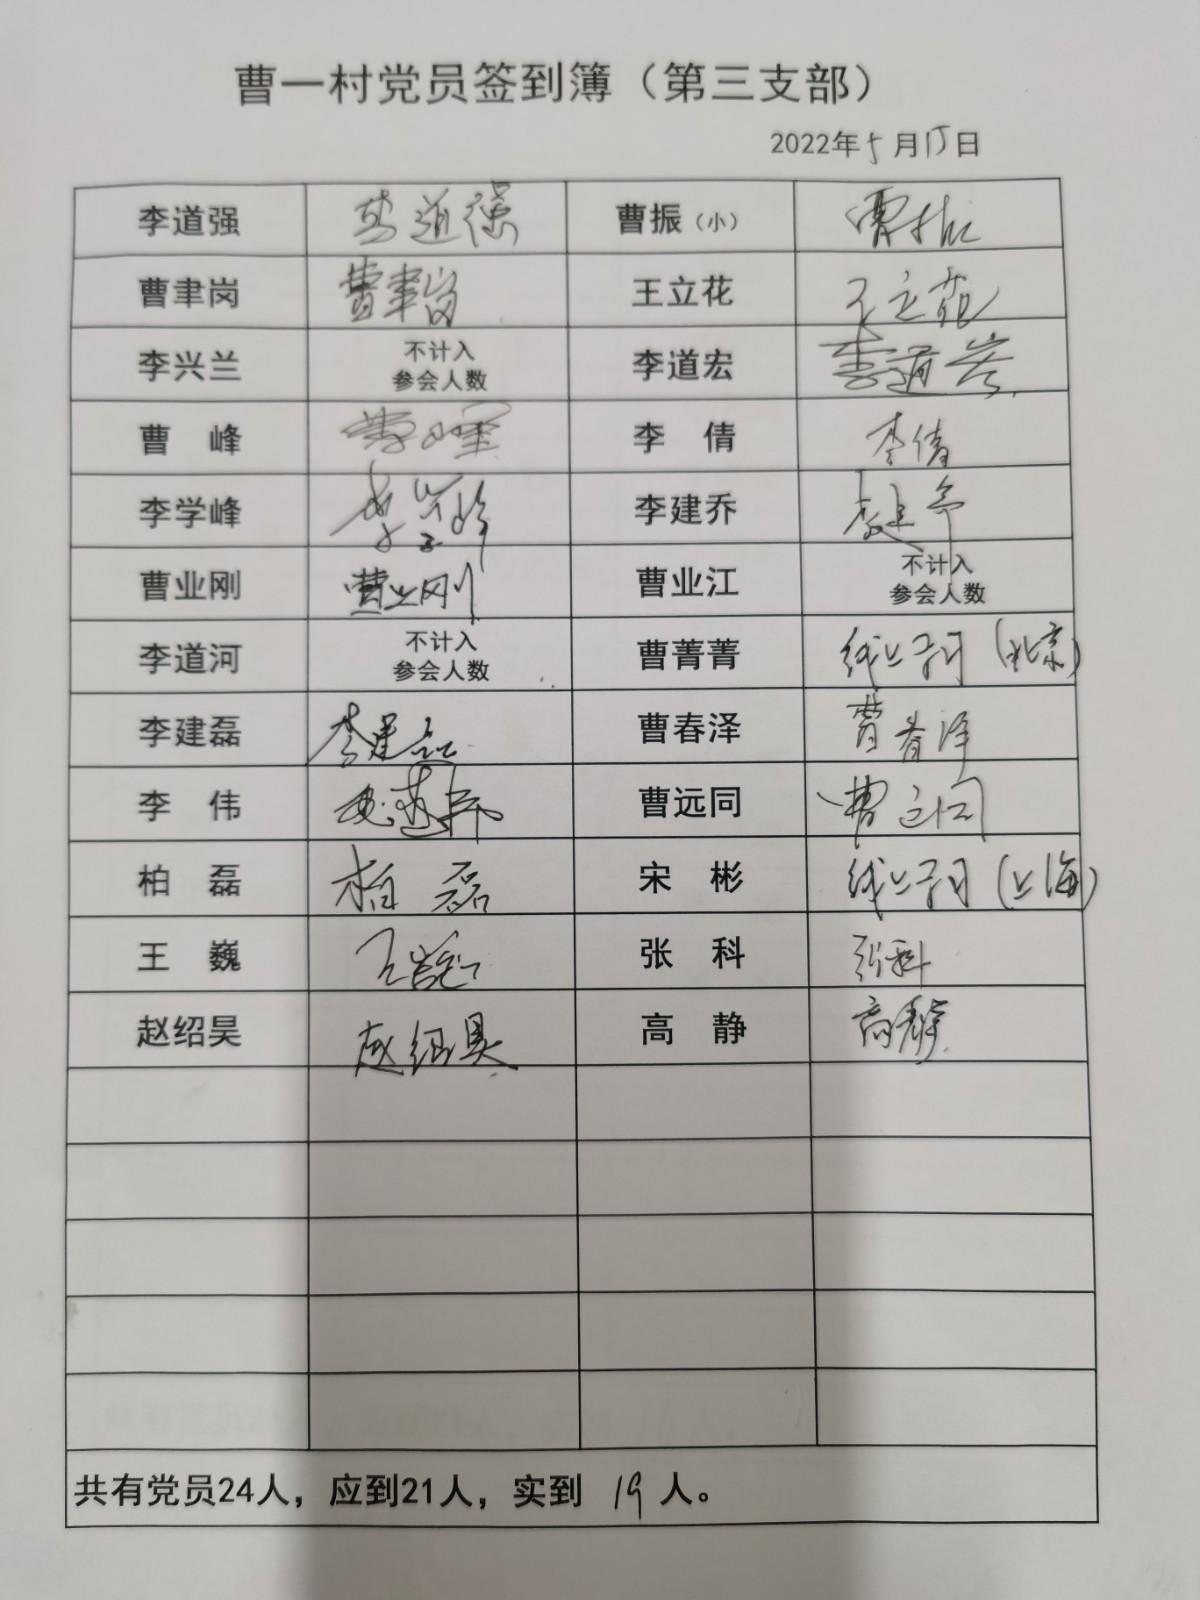 曹一村党员签到簿（第三支部）
2022年5月15日
李道强 李道强 曹振（小） 曹振
曹聿岗 曹聿岗 王立花 王立花
李兴兰 不计入
参会人数 李道宏 李道宏
曹 峰 曹峰 李 倩 李倩
李学峰 李学峰 李建乔 李建乔
曹业刚 曹业刚 曹业江 不计入
参会人数
李道河 不计入
参会人数 曹菁菁 线上学习（北京）
李建磊 李建磊 曹春泽 曹春泽
李 伟 曹远同 曹远同
柏 磊 柏磊 宋 彬 线上学习（上海）
王 巍 王巍 张 科 张科
赵绍昊 赵绍昊 高 静 高静
共有党员24人，应到21人，实到 19 人。